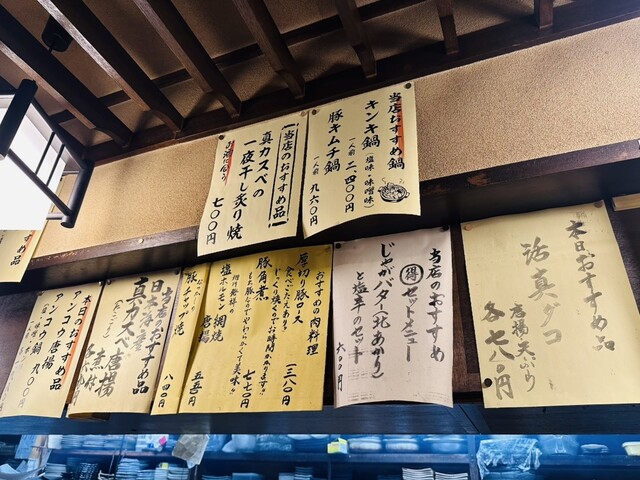 当店おすすめ鍋
キンキ鍋
塩味・味噌味
一人前 二、四〇〇円
豚キムチ鍋
一人前 九六〇円
当店のおすすめ品
真カスベの
一夜干し炙り焼
七〇〇円
本日おすすめ品
活真ダコ
唐揚 天ぷら
各七八〇円
当店のおすすめ
得セットメニュー
じゃがバター(北あかり)
と塩辛のセット
六八〇円
おすすめの肉料理
厚切り豚ロース
食べごたえあり?
じっくり焼くのでお時間かかります!!
一三八〇
豚角煮
もも豚なのでやわらかくて美味
七七〇円
塩ホルモン網焼
五五〇
唐揚
当店おすすめ品
日本海産
真カスベ唐揚
煮付
八四〇
本日のおすすめ
アンコウ唐揚
アンコウ鍋
九〇〇円